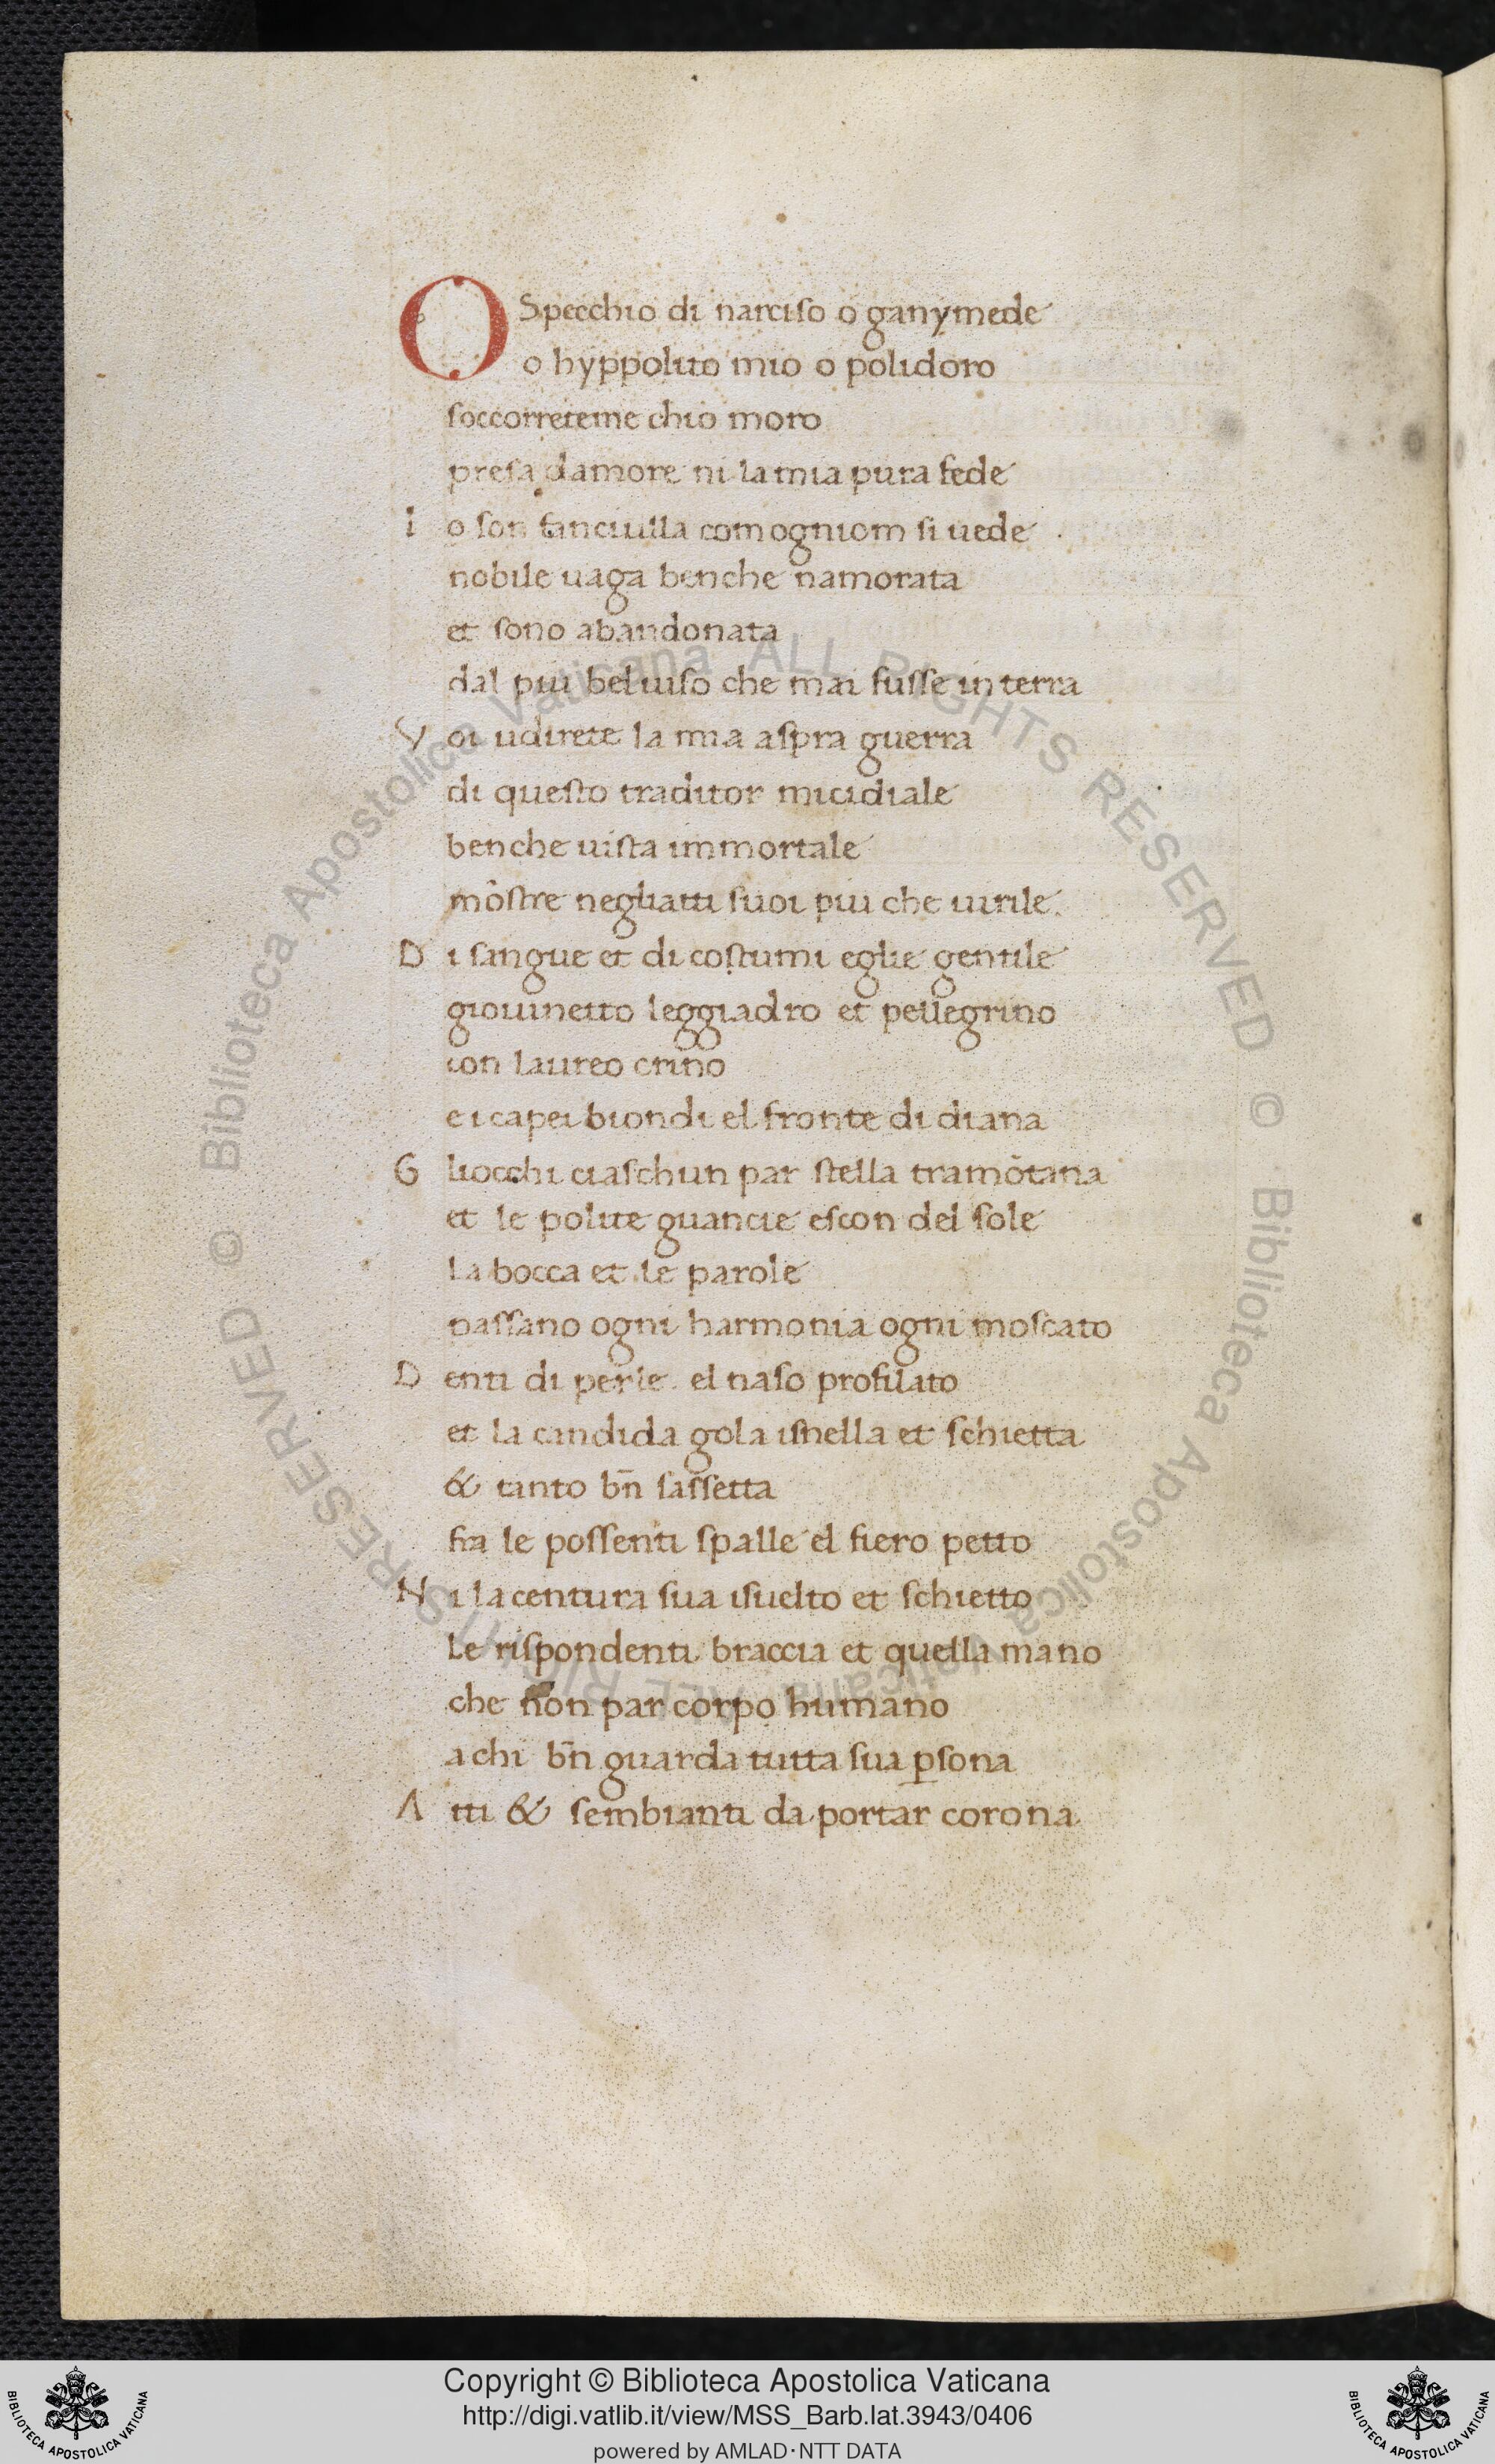 O Specchio di narciſo o ganymede
o hyppolito mio o polidoro
ſoccorreteme chio moro
preſa damore ni la mia pura fede
I o ſon fanciulla com ogniom ſi uede
nobile uaga benche namorata
et ſono abandonata
dal piu bel uiſo che mai fuſſe in terra
V oi udirete la mia aſpra guerra
di queſto traditor micidiale
benche uiſta immortale
mõſtre negliatti ſuoi piu che uirile
D i ſangue et di coſtumi eglie gentile
giouinetto leggiadro et pellegrino
con laureo crino
e i capei biondi el fronte di diana
G liocchi ciaſchun par ſtella tramõtana
et le polite guancie eſcon del ſole
la bocca et le parole
paſſano ogni harmonia ogni moſcato
D enti di perle el naſo profilato
et la candida gola iſnella et ſchietta
& tanto bñ ſaſſetta
fra le poſſenti ſpalle el fiero petto
N i la centura ſua iſuelto et ſchietto
le riſpondenti braccia et quella mano
che non par corpo humano
a chi bñ guarda tutta ſua ꝑſona
A tti & ſembianti da portar corona
© Biblioteca Apostolica Vaticana ALL RIGHTS RESERVED
© Biblioteca Apostolica Vaticana ALL RIGHTS RESERVED
Copyright © Biblioteca Apostolica Vaticana
http://digi.vatlib.it/view/MSS_Barb.lat.3943/0406
powered by AMLAD·NTT DATA
BIBLIOTECA APOSTOLICA VATICANA
BIBLIOTECA APOSTOLICA VATICANA